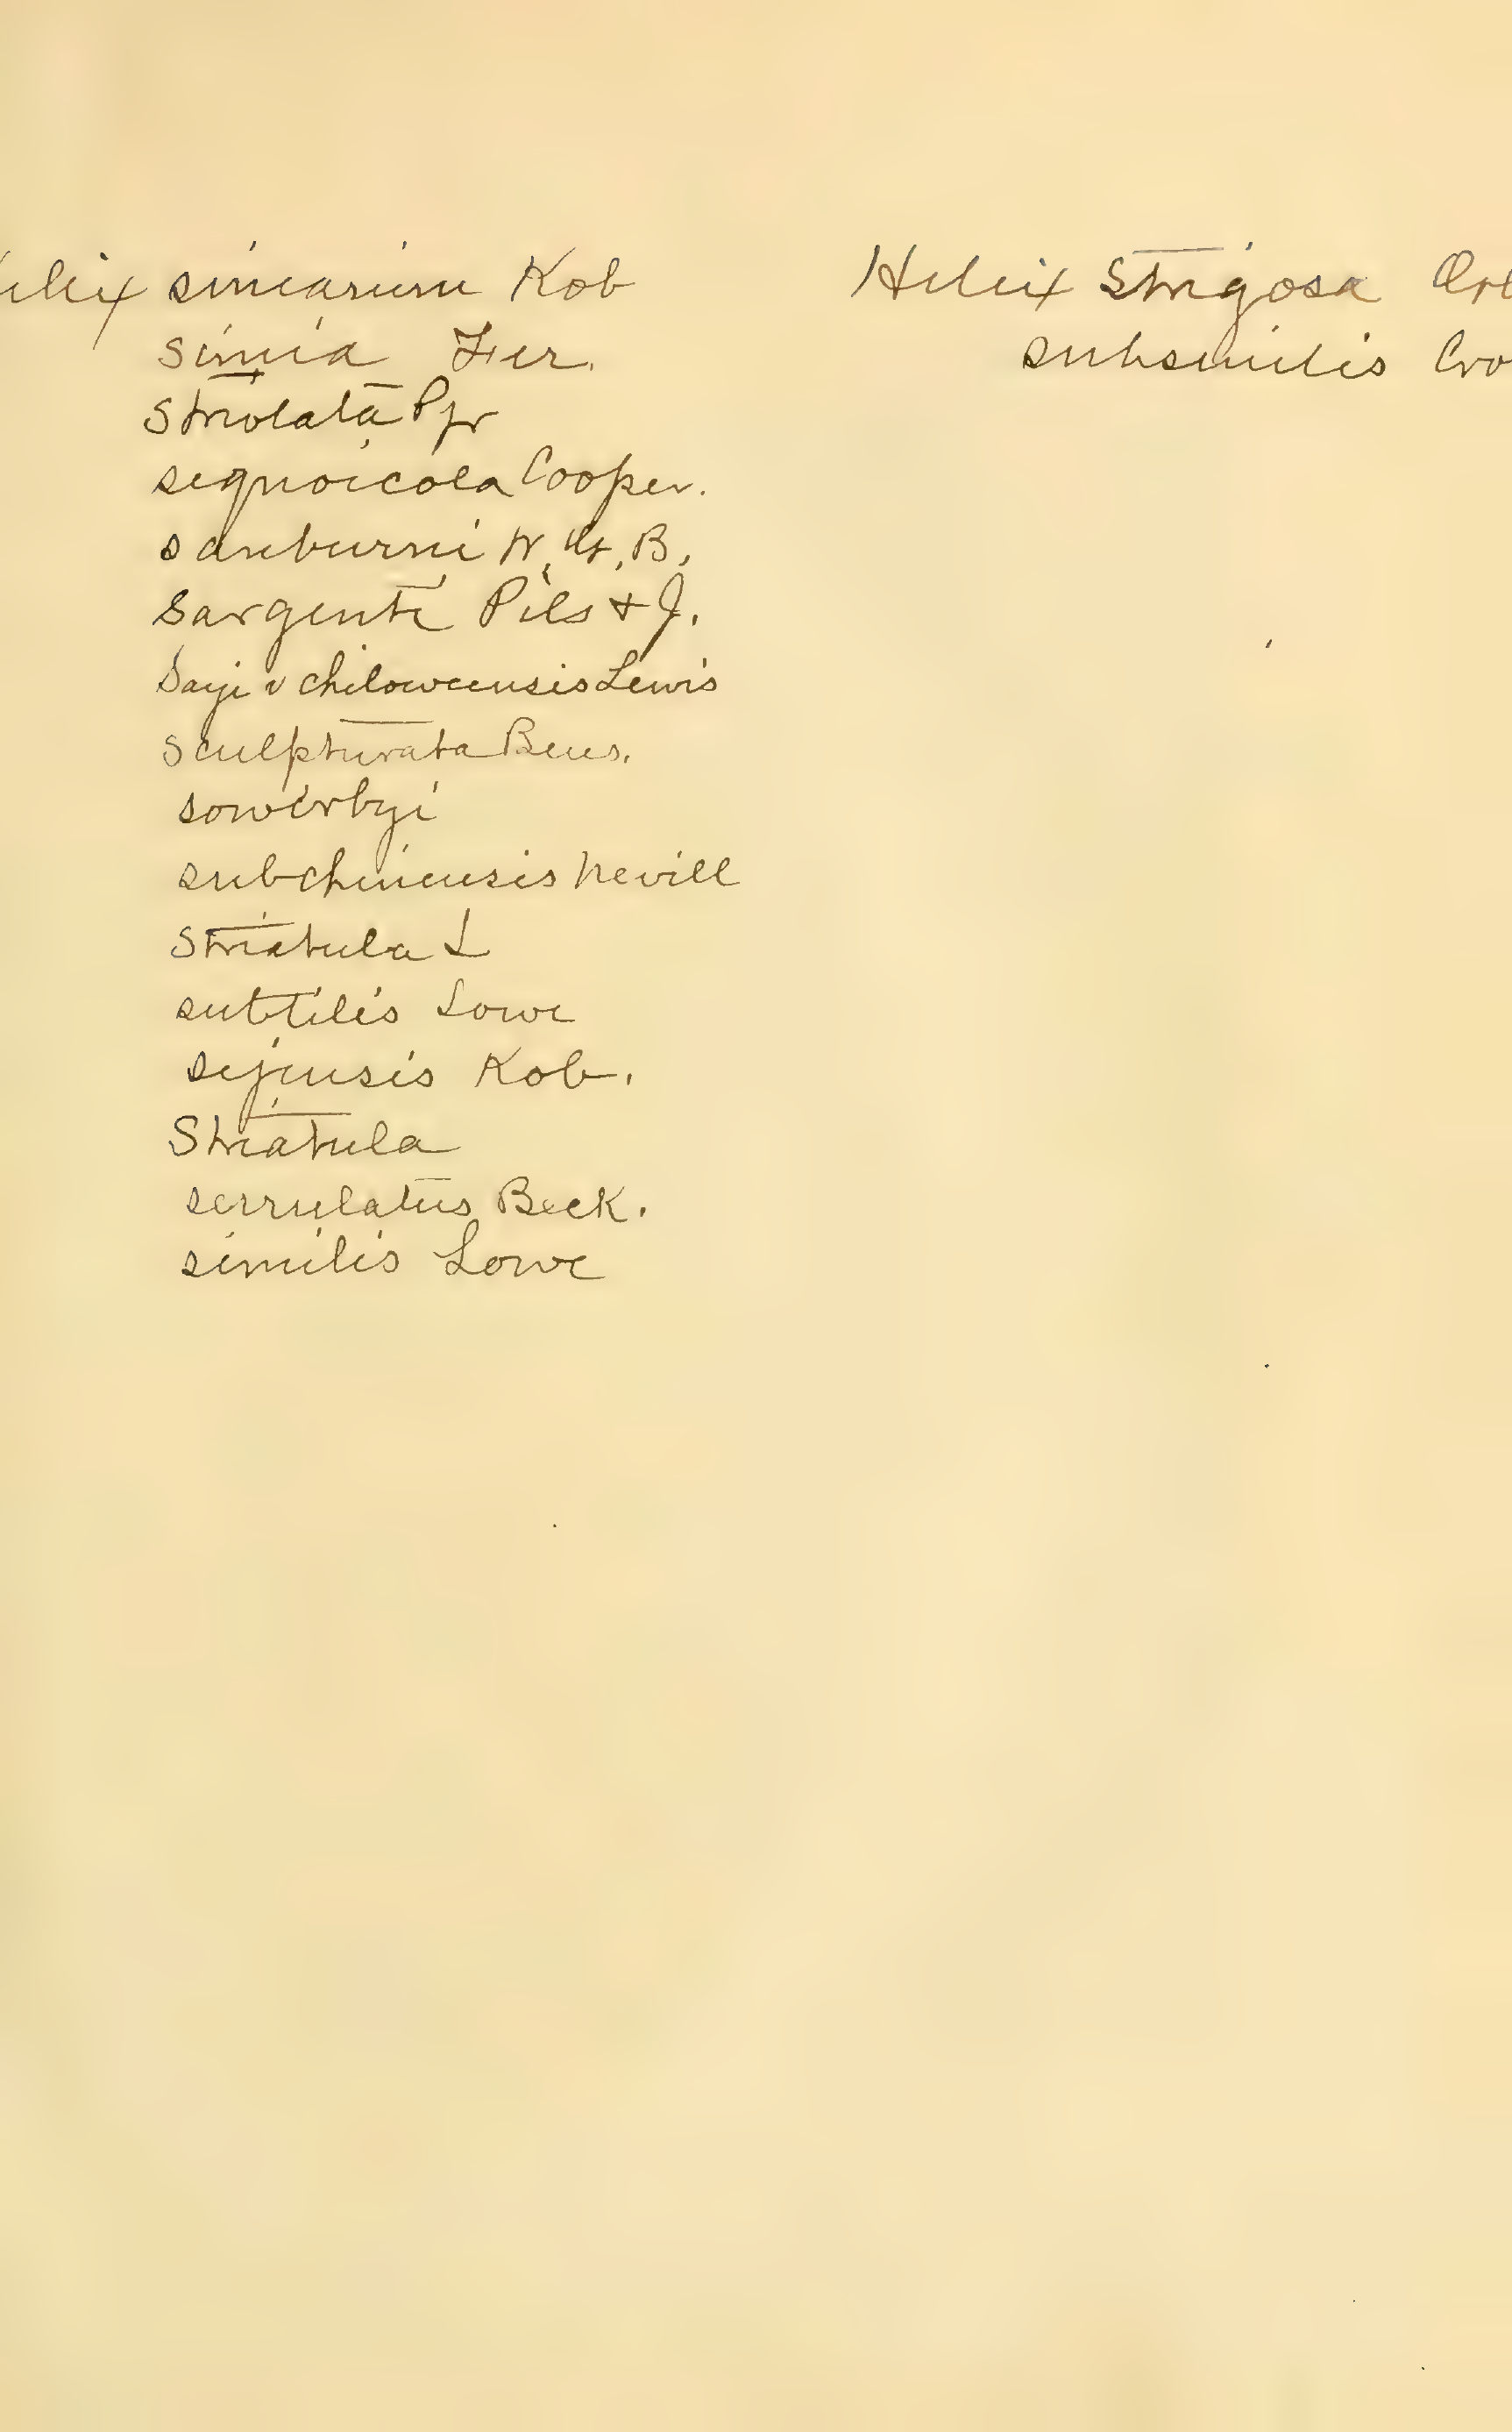 elix sinearium Kob
simia Fer.
Striolata Pfr
sequoicola Cooper.
sanburni W. G. B.
Sargenti Pils + J.
Sayi v chiloweensis Lewis
Sculpturata Bens.
sowerbyi
subchinensis Nevill
Striatula L
subtilis Lowe
sejensis Kob.
Striatula
serrulatus Beck.
similis Lowe
Helix Strigosa
subsimilis Cro